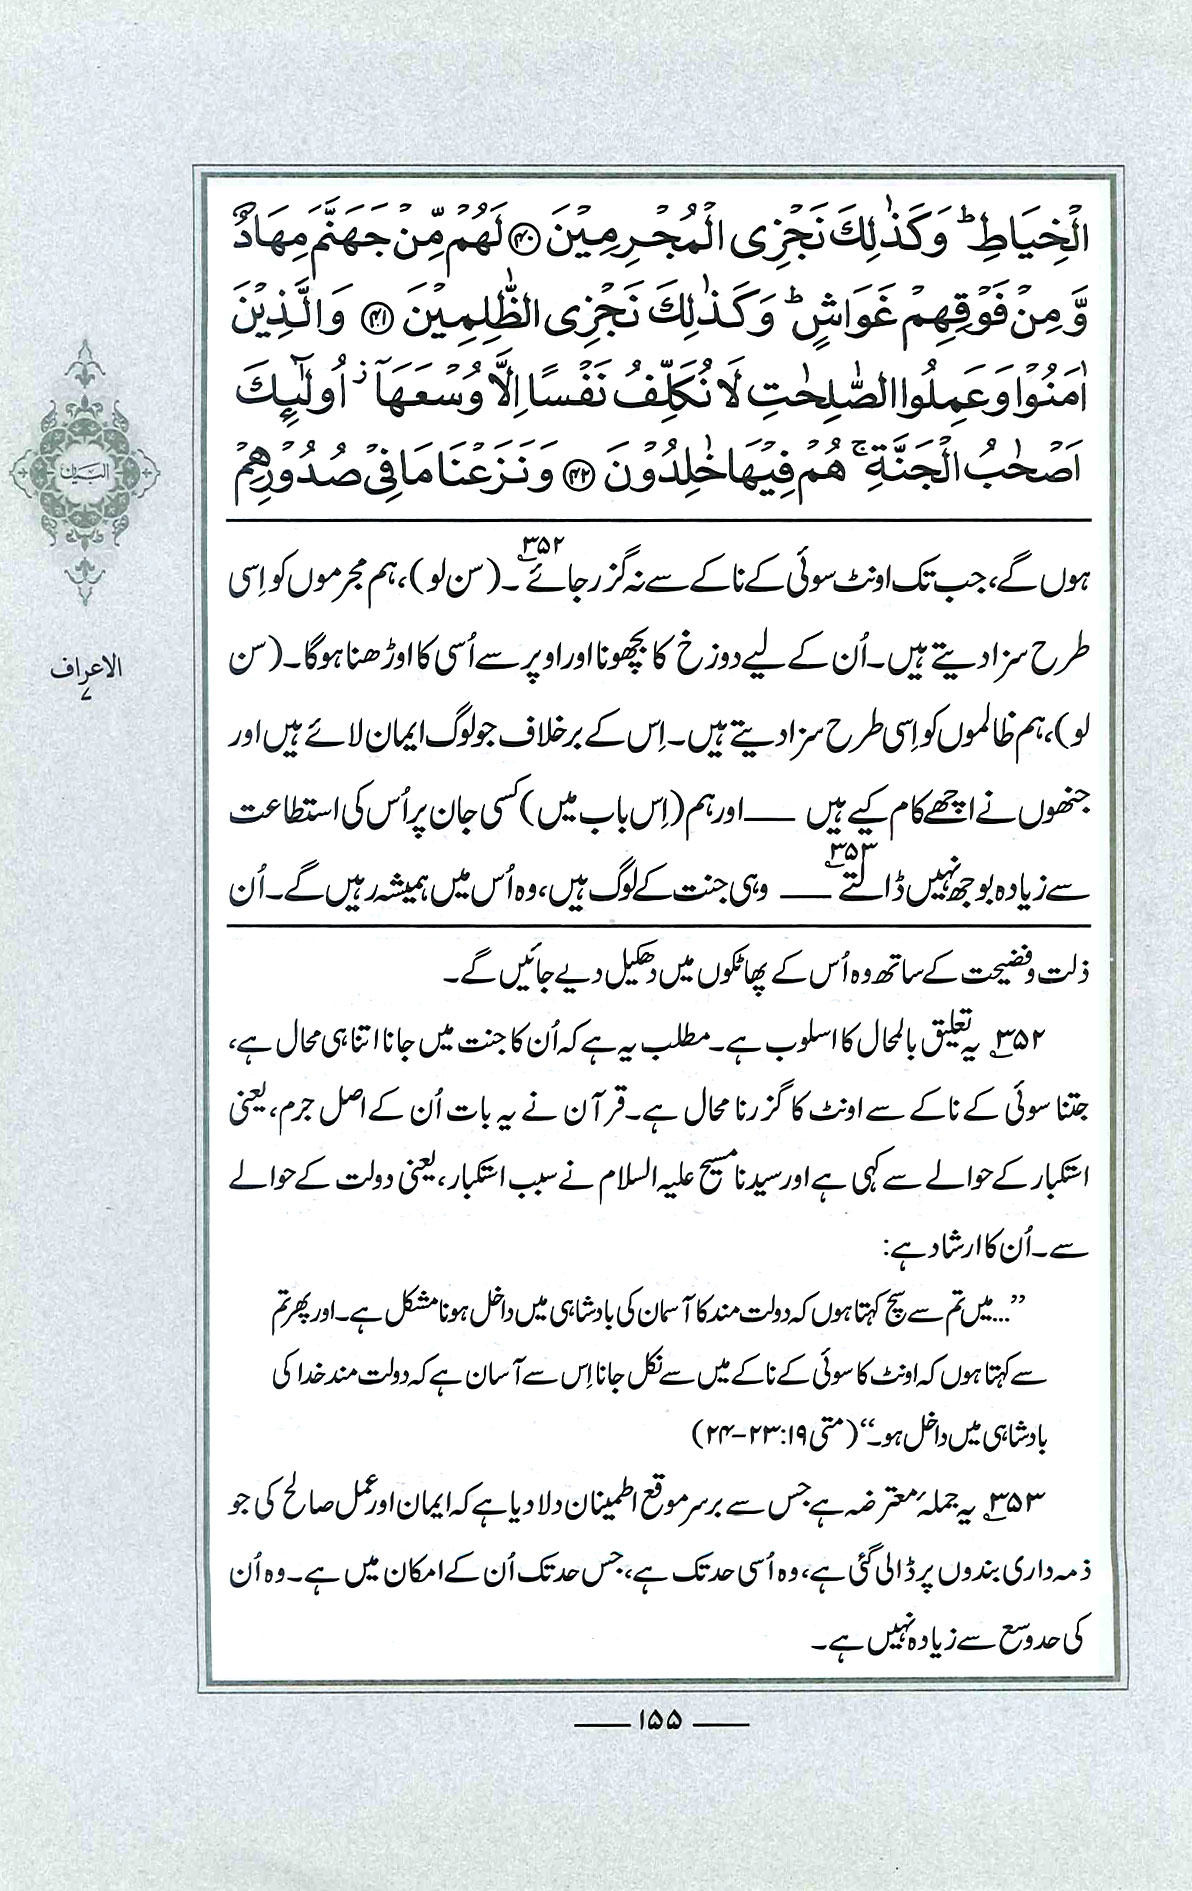 الْخِيَاطِ ؕ وَكَذٰلِكَ نَجْزِى الْمُجْرِمِيْنَ ﴿۴۰﴾ لَهُمْ مِّنْ جَهَنَّمَ مِهَادٌ
وَّ مِنْ فَوْقِهِمْ غَوَاشٍ ؕ وَكَذٰلِكَ نَجْزِى الظّٰلِمِيْنَ ﴿۴۱﴾ وَالَّذِيْنَ
اٰمَنُوْا وَعَمِلُوا الصّٰلِحٰتِ لَا نُكَلِّفُ نَفْسًا اِلَّا وُسْعَهَاۤ ۫ اُولٰٓئِكَ
اَصْحٰبُ الْجَنَّةِ ۚ هُمْ فِيْهَا خٰلِدُوْنَ ﴿۴۲﴾ وَنَزَعْنَا مَا فِيْ صُدُوْرِهِمْ
ہوں گے، جب تک اونٹ سوئی کے ناکے سے نہ گزر جائے۳۵۲۔ (سن لو)، ہم مجرموں کو اِسی
طرح سزا دیتے ہیں۔ اُن کے لیے دوزخ کا بچھونا اور اوپر سے اُسی کا اوڑھنا ہوگا۔ (سن
لو)، ہم ظالموں کو اِسی طرح سزا دیتے ہیں۔ اِس کے برخلاف جو لوگ ایمان لائے ہیں اور
جنھوں نے اچھے کام کیے ہیں ــــ اور ہم (اِس باب میں) کسی جان پر اُس کی استطاعت
سے زیادہ بوجھ نہیں ڈالتے۳۵۳ ــــ وہی جنت کے لوگ ہیں، وہ اُس میں ہمیشہ رہیں گے۔ اُن
ذلت و فضیحت کے ساتھ وہ اُس کے پھاٹکوں میں دھکیل دیے جائیں گے۔
۳۵۲؎ یہ تعلیق بالمحال کا اسلوب ہے۔ مطلب یہ ہے کہ اُن کا جنت میں جانا اتنا ہی محال ہے،
جتنا سوئی کے ناکے سے اونٹ کا گزرنا محال ہے۔ قرآن نے یہ بات اُن کے اصل جرم، یعنی
استکبار کے حوالے سے کہی ہے اور سیدنا مسیح علیہ السلام نے سبب استکبار، یعنی دولت کے حوالے
سے۔ اُن کا ارشاد ہے:
”...میں تم سے سچ کہتا ہوں کہ دولت مند کا آسمان کی بادشاہی میں داخل ہونا مشکل ہے۔ اور پھر تم
سے کہتا ہوں کہ اونٹ کا سوئی کے ناکے میں سے نکل جانا اِس سے آسان ہے کہ دولت مند خدا کی
بادشاہی میں داخل ہو۔“ (متی ۱۹: ۲۳-۲۴)
۳۵۳؎ یہ جملۂ معترضہ ہے جس سے برسر موقع اطمینان دلا دیا ہے کہ ایمان اور عمل صالح کی جو
ذمہ داری بندوں پر ڈالی گئی ہے، وہ اُسی حد تک ہے، جس حد تک اُن کے امکان میں ہے۔ وہ اُن
کی حد وسع سے زیادہ نہیں ہے۔
البیان
الاعراف
۷
۱۵۵